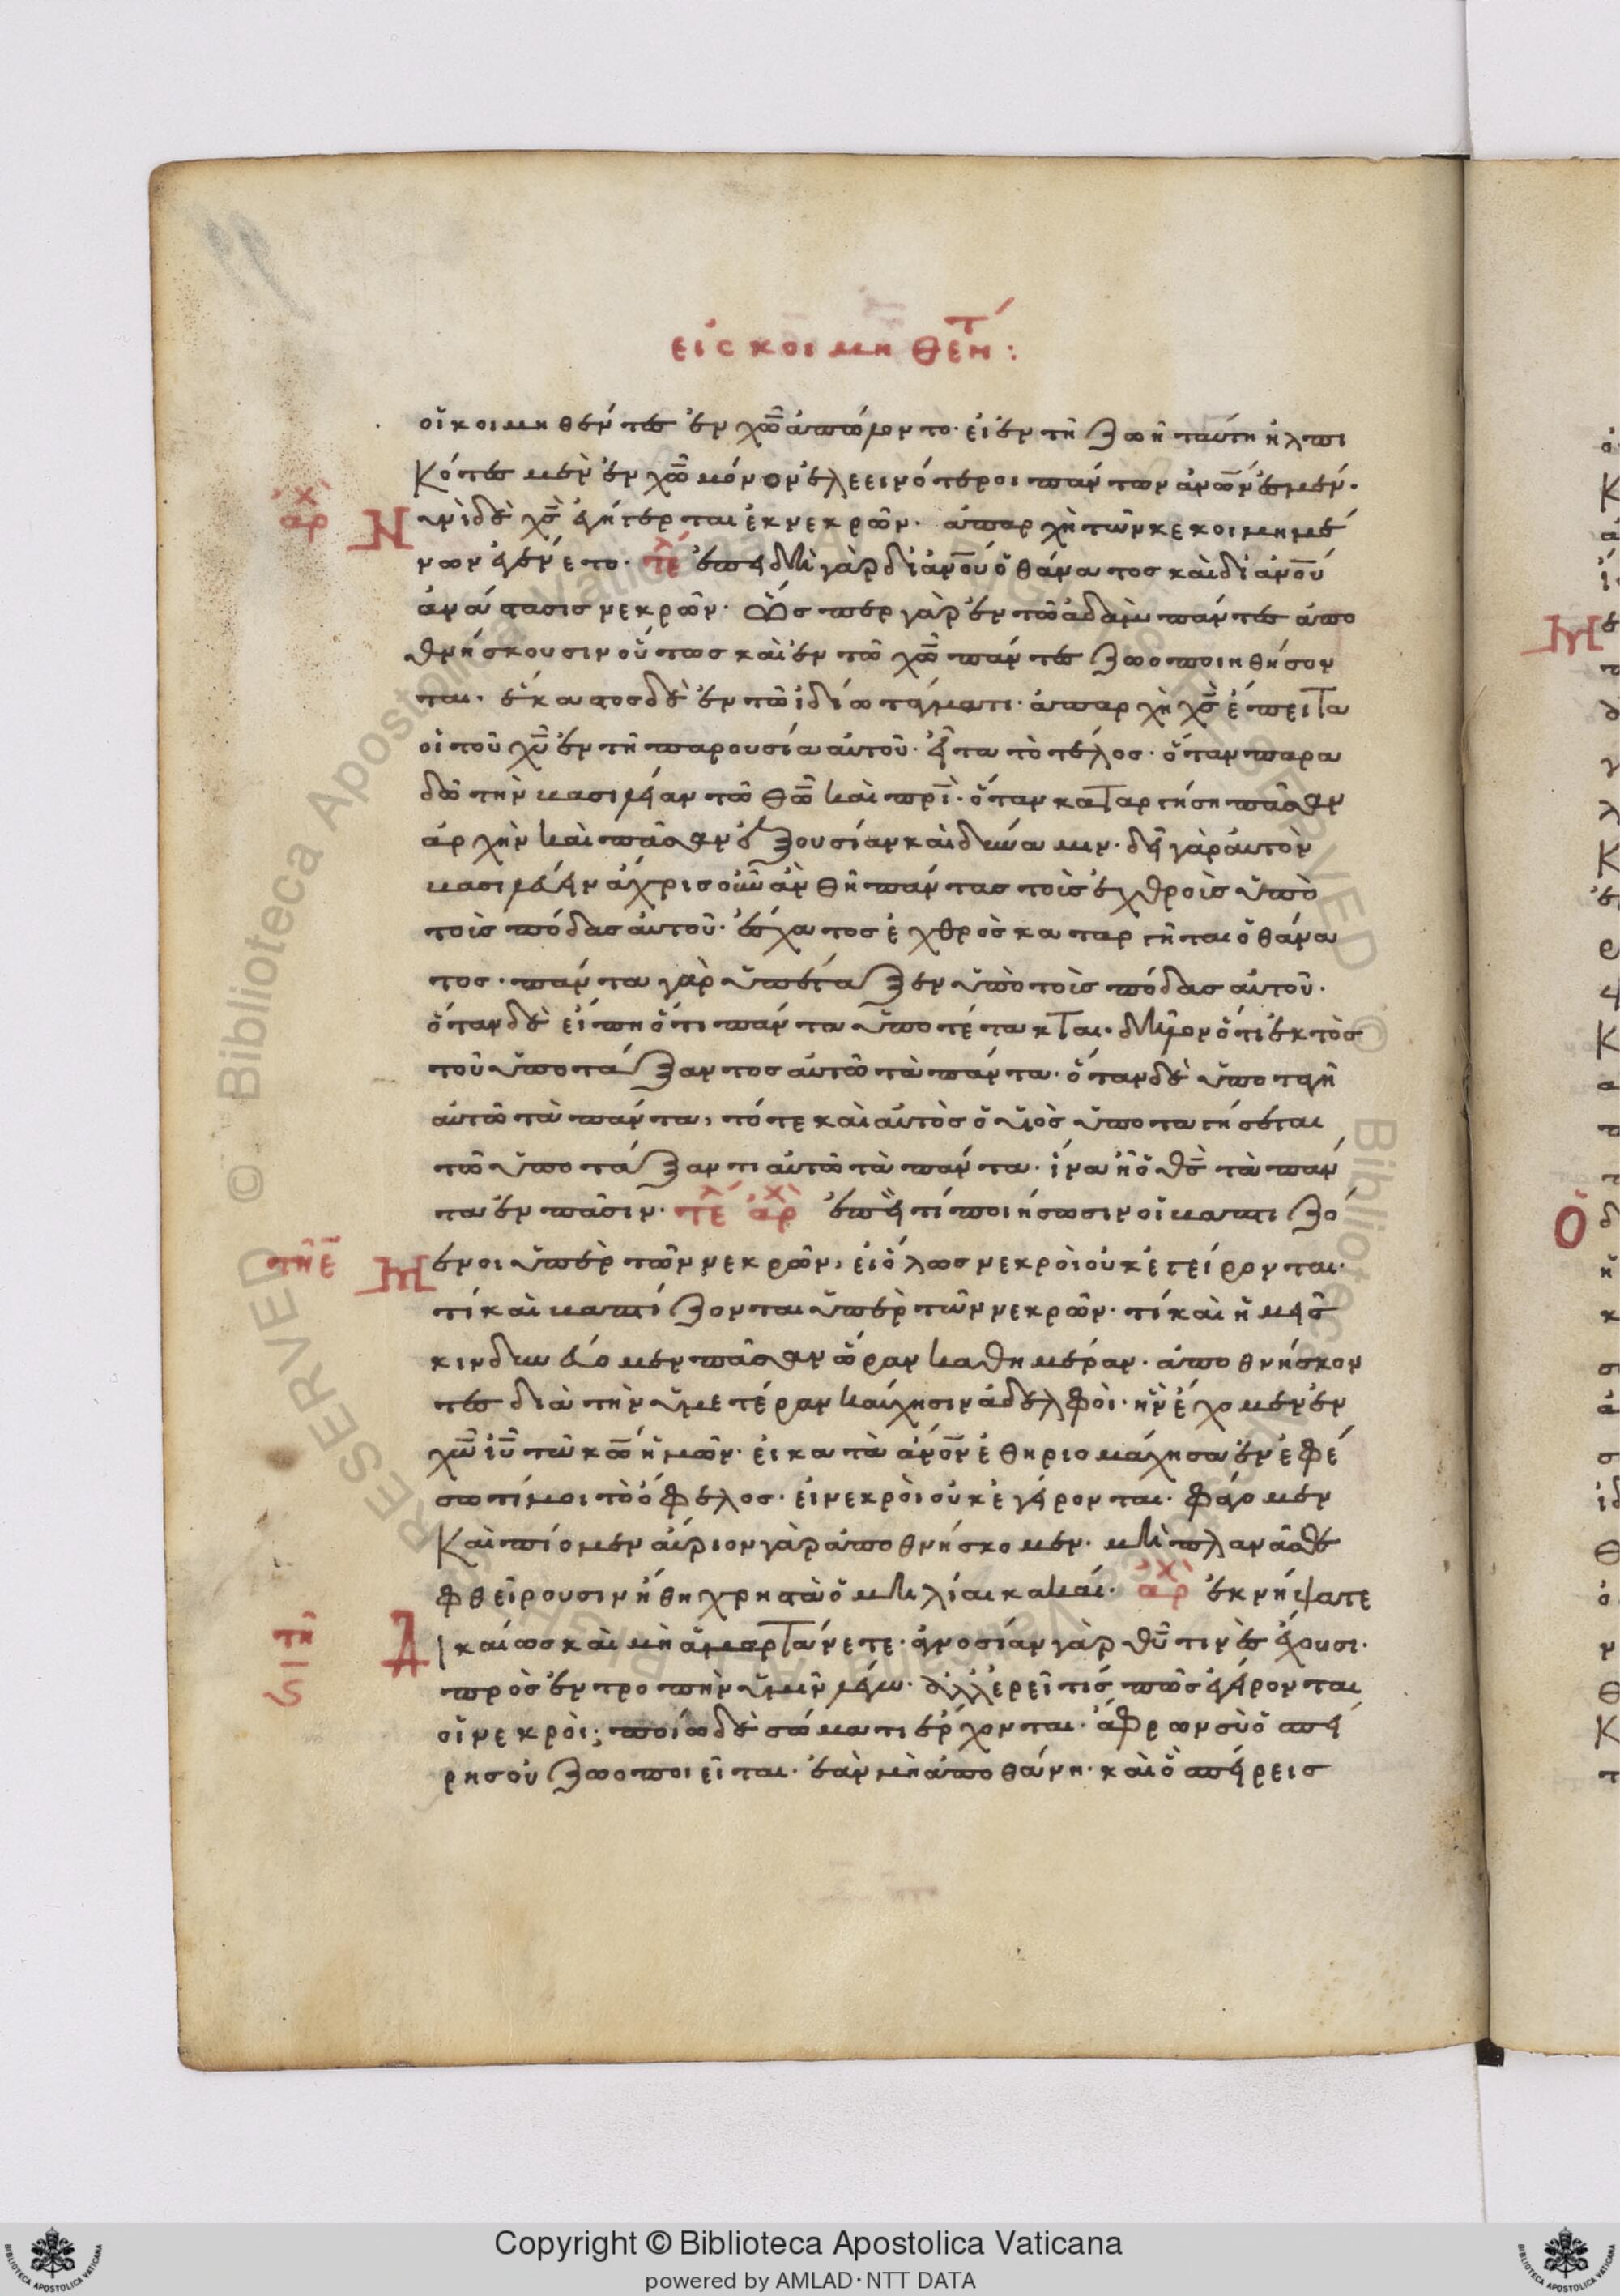 εἰς κοιμηθέντ:
οἱ κοιμηθέντες ἐν χ̅ω̅ ἀπώλοντο· εἰ ἐν τῆ ζωῆ ταύτη ἠλπι
κότες μὲν ἐν χ̅ω̅ μόνον ἐλεεινότεροι πάντων ἀν̅ω̅ν ἐσμέν·
ἀρχ Νυνὶ δὲ χ̅ς̅ ἐγήγερται ἐκ νεκρῶν· ἀπαρχὴ τῶν κεκοιμημέ
νων ἐγένετο· τέ ἐπειδὴ γὰρ δι' ἀν̅ο̅υ̅ ὁ θάνατος καὶ δι' ἀν̅ο̅υ̅
ἀνάστασις νεκρῶν· ὥσπερ γὰρ ἐν τῶ ἀδὰμ πάντες ἀπο
θνήσκουσιν οὕτως καὶ ἐν τῶ χ̅ω̅ πάντες ζωοποιηθήσον
ται· ἕκαστος δὲ ἐν τῶ ἰδίω τάγματι· ἀπαρχὴ χ̅ς̅ ἔπειτα
οἱ τοῦ χ̅υ̅ ἐν τῆ παρουσία αὐτοῦ· εἶτα τὸ τέλος· ὅταν παρα
δῶ τὴν βασιλείαν τῶ θ̅ω̅ καὶ π̅ρ̅ι̅· ὅταν καταργήση πᾶσαν
ἀρχὴν καὶ πᾶσαν ἐξουσίαν καὶ δύναμιν· δεῖ γὰρ αὐτὸν
βασιλεύειν ἄχρις οὗ ἂν θῆ πάντας τοὺς ἐχθροὺς ὑπὸ
τοὺς πόδας αὐτοῦ· ἔσχατος ἐχθρὸς καταργεῖται ὁ θάνα
τος· πάντα γὰρ ὑπέταξεν ὑπὸ τοὺς πόδας αὐτοῦ·
ὅταν δὲ εἴπη ὅτι πάντα ὑποτέτακται· δῆλον ὅτι ἐκτὸς
τοῦ ὑποτάξαντος αὐτῶ τὰ πάντα· ὅταν δὲ ὑποταγῆ
αὐτῶ τὰ πάντα, τότε καὶ αὐτὸς ὁ υἱὸς ὑποταγήσεται
τῶ ὑποτάξαντι αὐτῶ τὰ πάντα· ἵνα ἦ ὁ θ̅ς̅ τὰ πάν
τα ἐν πᾶσιν· τέ ἀρχ ἐπεὶ τί ποιήσωσιν οἱ βαπτιζό
τῆ ε̅ μενοι ὑπὲρ τῶν νεκρῶν, εἰ ὅλως νεκροὶ οὐκ ἐγείρονται·
τί καὶ βαπτίζονται ὑπὲρ τῶν νεκρῶν· τί καὶ ἡμεῖς
κινδυνεύομεν πᾶσαν ὥραν καθημέραν· ἀποθνήσκον
τες διὰ τὴν ὑμετέραν καύχησιν ἀδελφοὶ· ἣν ἔχομεν ἐν
χ̅ω̅ ι̅υ̅ τῶ κ̅ω̅ ἡμῶν· εἰ κατὰ ἄν̅ο̅ν̅ ἐθηριομάχησα ἐν ἐφέ
σω τί μοι τὸ ὄφελος· εἰ νεκροὶ οὐκ ἐγείρονται· φάγομεν
καὶ πίομεν αὔριον γὰρ ἀποθνήσκομεν· μὴ πλανᾶσθε
φθείρουσιν ἤθη χρηστὰ ὁμιλίαι κακαί· ἀρχ ἐκνήψατε
τῆ ς̅ Δικαίως καὶ μὴ ἁμαρτάνετε· ἀγνοσίαν γὰρ θ̅υ̅ τινὲς ἔχουσι·
πρὸς ἐντροπὴν ὑμῖν λέγω· ἀλλ' ἐρεῖ τίς πῶς ἐγείρονται
οἱ νεκροὶ; ποίω δὲ σώματι ἔρχονται· ἄφρων σὺ ὁ σπεί
ρης οὐ ζωοποιεῖται· ἐὰν μὴ ἀποθάνη· καὶ ὃ σπείρεις
Copyright © Biblioteca Apostolica Vaticana
powered by AMLAD·NTT DATA